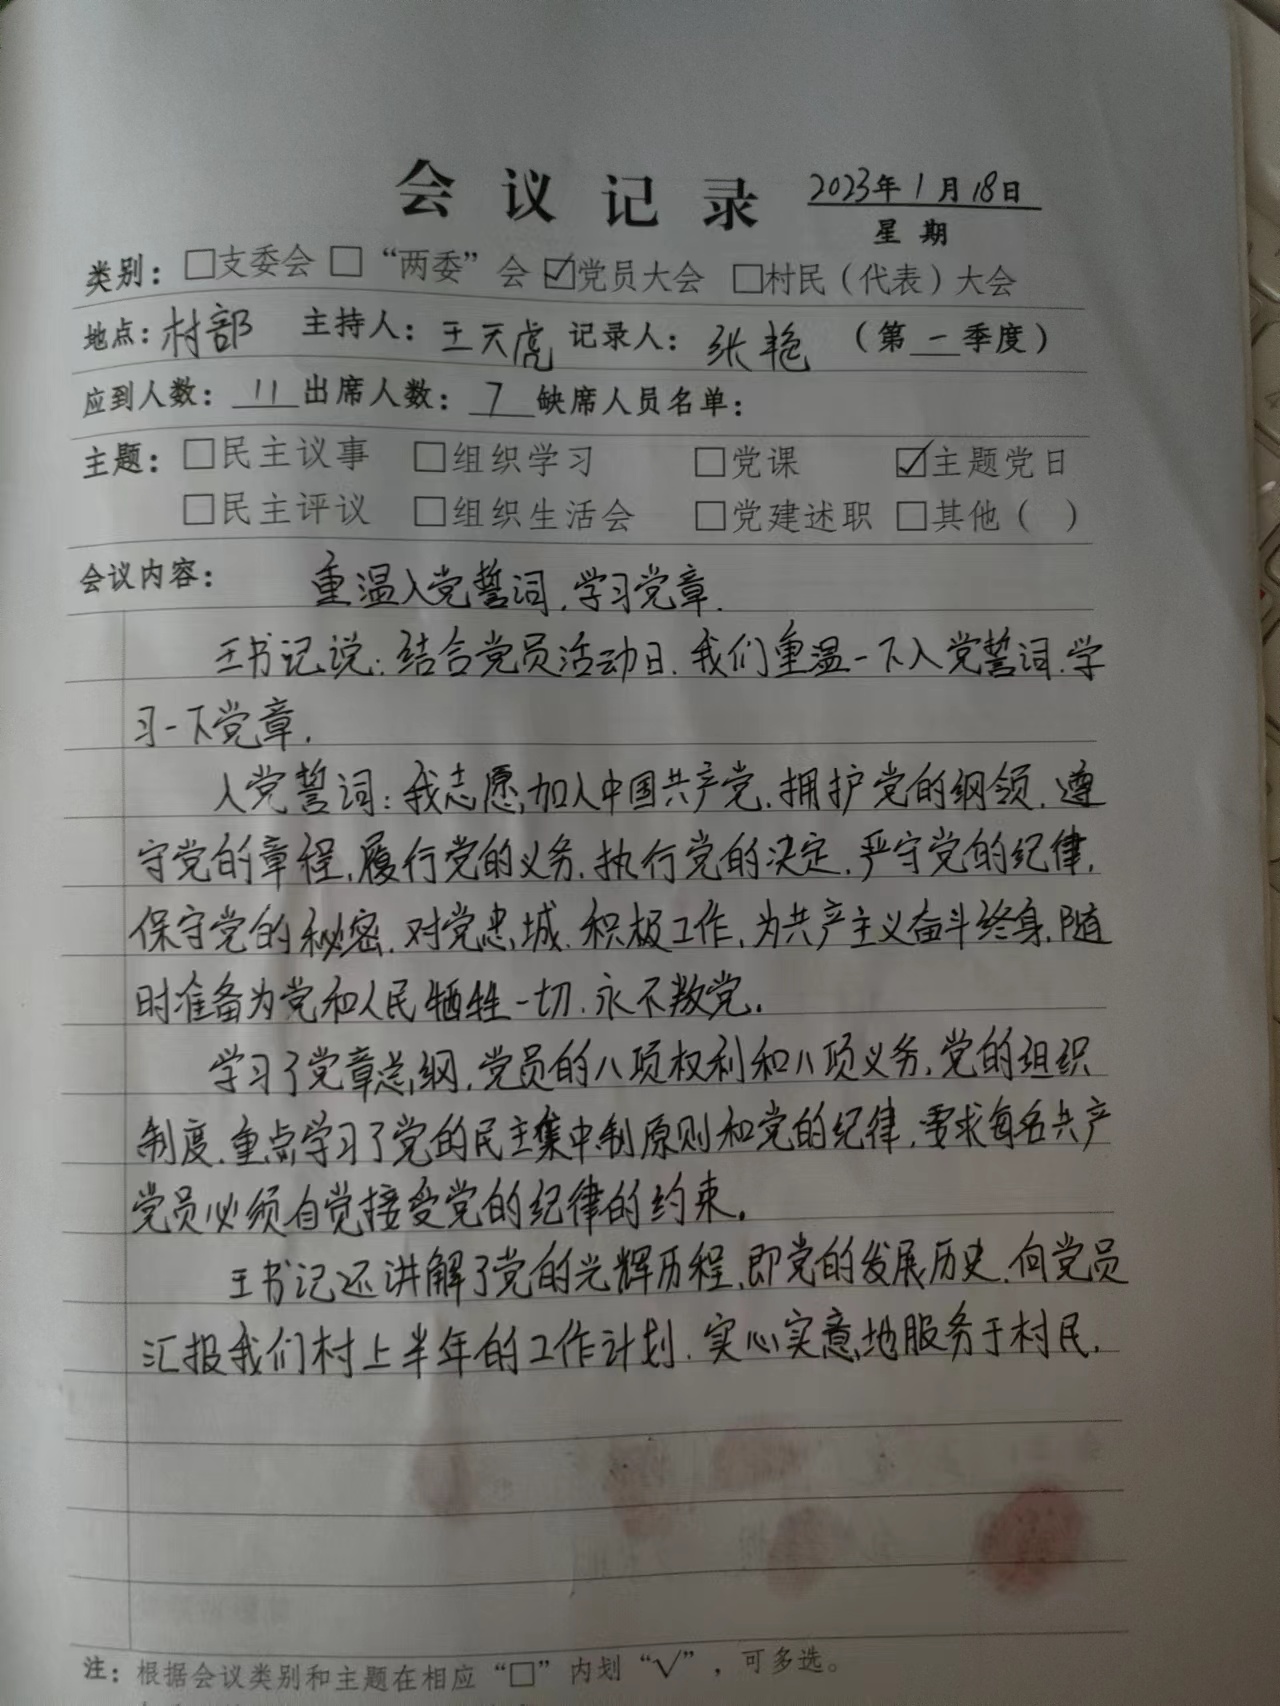 会议记录 2023年1月18日
星期
类别：□支委会 □“两委”会 ☑党员大会 □村民（代表）大会
地点：村部 主持人：王天虎 记录人：张艳 （第一季度）
应到人数：11 出席人数：7 缺席人员名单：
主题：□民主议事 □组织学习 □党课 ☑主题党日
□民主评议 □组织生活会 □党建述职 □其他（ ）
会议内容： 重温入党誓词，学习党章．
王书记说：结合党员活动日，我们重温一下入党誓词，学
习一下党章．
入党誓词：我志愿加入中国共产党，拥护党的纲领，遵
守党的章程，履行党的义务，执行党的决定，严守党的纪律，
保守党的秘密，对党忠城，积极工作，为共产主义奋斗终身，随
时准备为党和人民牺牲一切，永不叛党。
学习了党章总纲，党员的八项权利和八项义务，党的组织
制度，重点学习了党的民主集中制原则和党的纪律，要求每名共产
党员必须自觉接受党的纪律的约束。
王书记还讲解了党的光辉历程，即党的发展历史，向党员
汇报我们村上半年的工作计划，实心实意地服务于村民．
注：根据会议类别和主题在相应“□”内划“√”，可多选。